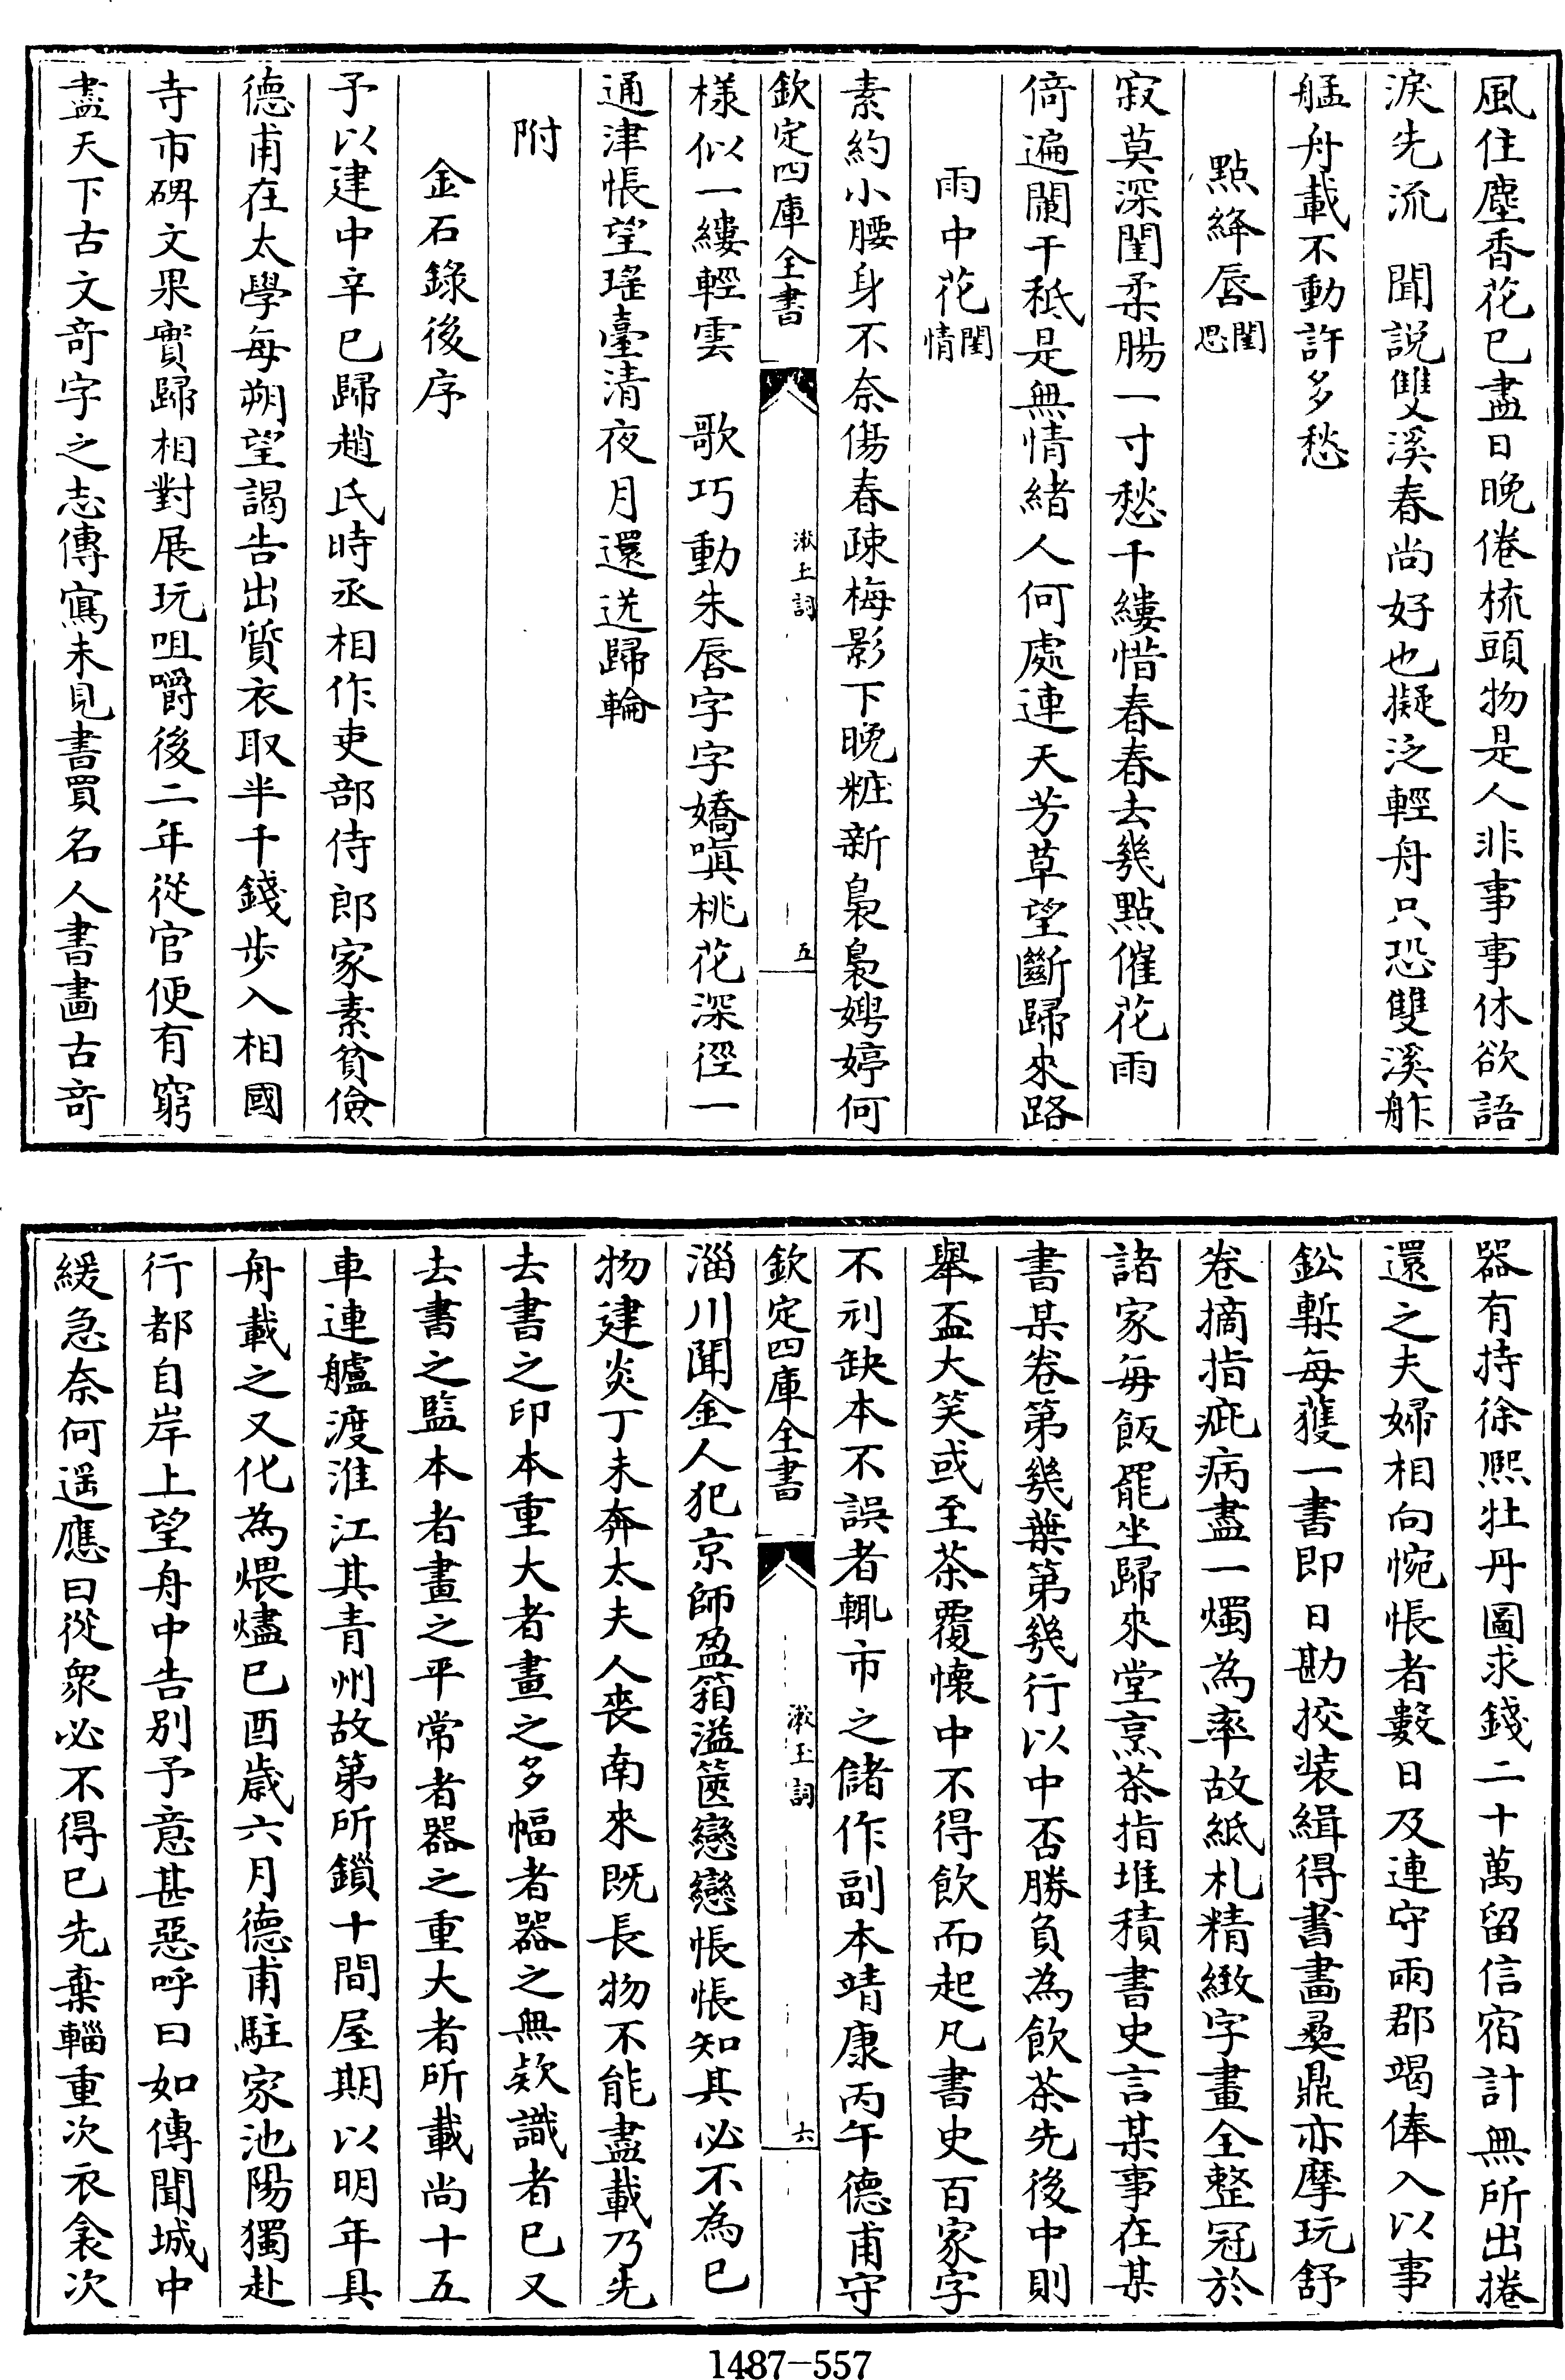 風住塵香花已盡日晚倦梳頭物是人非事事休欲語
淚先流　聞說雙溪春尚好也擬泛輕舟只恐雙溪舴
艋舟載不動許多愁
點絳唇閨思
寂莫深閨柔腸一寸愁千縷惜春春去幾點催花雨
倚遍闌干秪是無情緒人何處連天芳草望斷歸來路
雨中花閨情
素約小腰身不奈傷春疎梅影下晚粧新裊裊娉婷何
欽定四庫全書
漱玉詞
五
樣似一縷輕雲　歌巧動朱唇字字嬌嗔桃花深徑一
通津悵望瑤臺清夜月還送歸輪
附
金石錄後序
予以建中辛巳歸趙氏時丞相作吏部侍郎家素貧儉
德甫在太學每朔望謁告出質衣取半千錢步入相國
寺市碑文果實歸相對展玩咀嚼後二年從官便有窮
盡天下古文奇字之志傳寫未見書買名人書畫古奇
器有持徐熙牡丹圖求錢二十萬留信宿計無所出捲
還之夫婦相向惋悵者數日及連守兩郡竭俸入以事
鉛槧每獲一書即日勘挍裝緝得書畫彝鼎亦摩玩舒
卷摘指疵病盡一燭為率故紙札精緻字畫全整冠於
諸家每飯罷坐歸來堂烹茶指堆積書史言某事在某
書某卷第幾葉第幾行以中否勝負為飲茶先後中則
舉盃大笑或至茶覆懷中不得飲而起凡書史百家字
不刓缺本不誤者輒市之儲作副本靖康丙午德甫守
欽定四庫全書
漱玉詞
六
淄川聞金人犯京師盈箱溢篋戀戀悵悵知其必不為已
物建炎丁未奔太夫人喪南來既長物不能盡載乃先
去書之印本重大者畫之多幅者器之無款識者已又
去書之監本者畫之平常者器之重大者所載尚十五
車連艫渡淮江其青州故第所鎖十間屋期以明年具
舟載之又化為煨燼已酉歲六月德甫駐家池陽獨赴
行都自岸上望舟中告別予意甚惡呼曰如傳聞城中
緩急奈何遥應曰從衆必不得已先棄輜重次衣衾次
1487-557